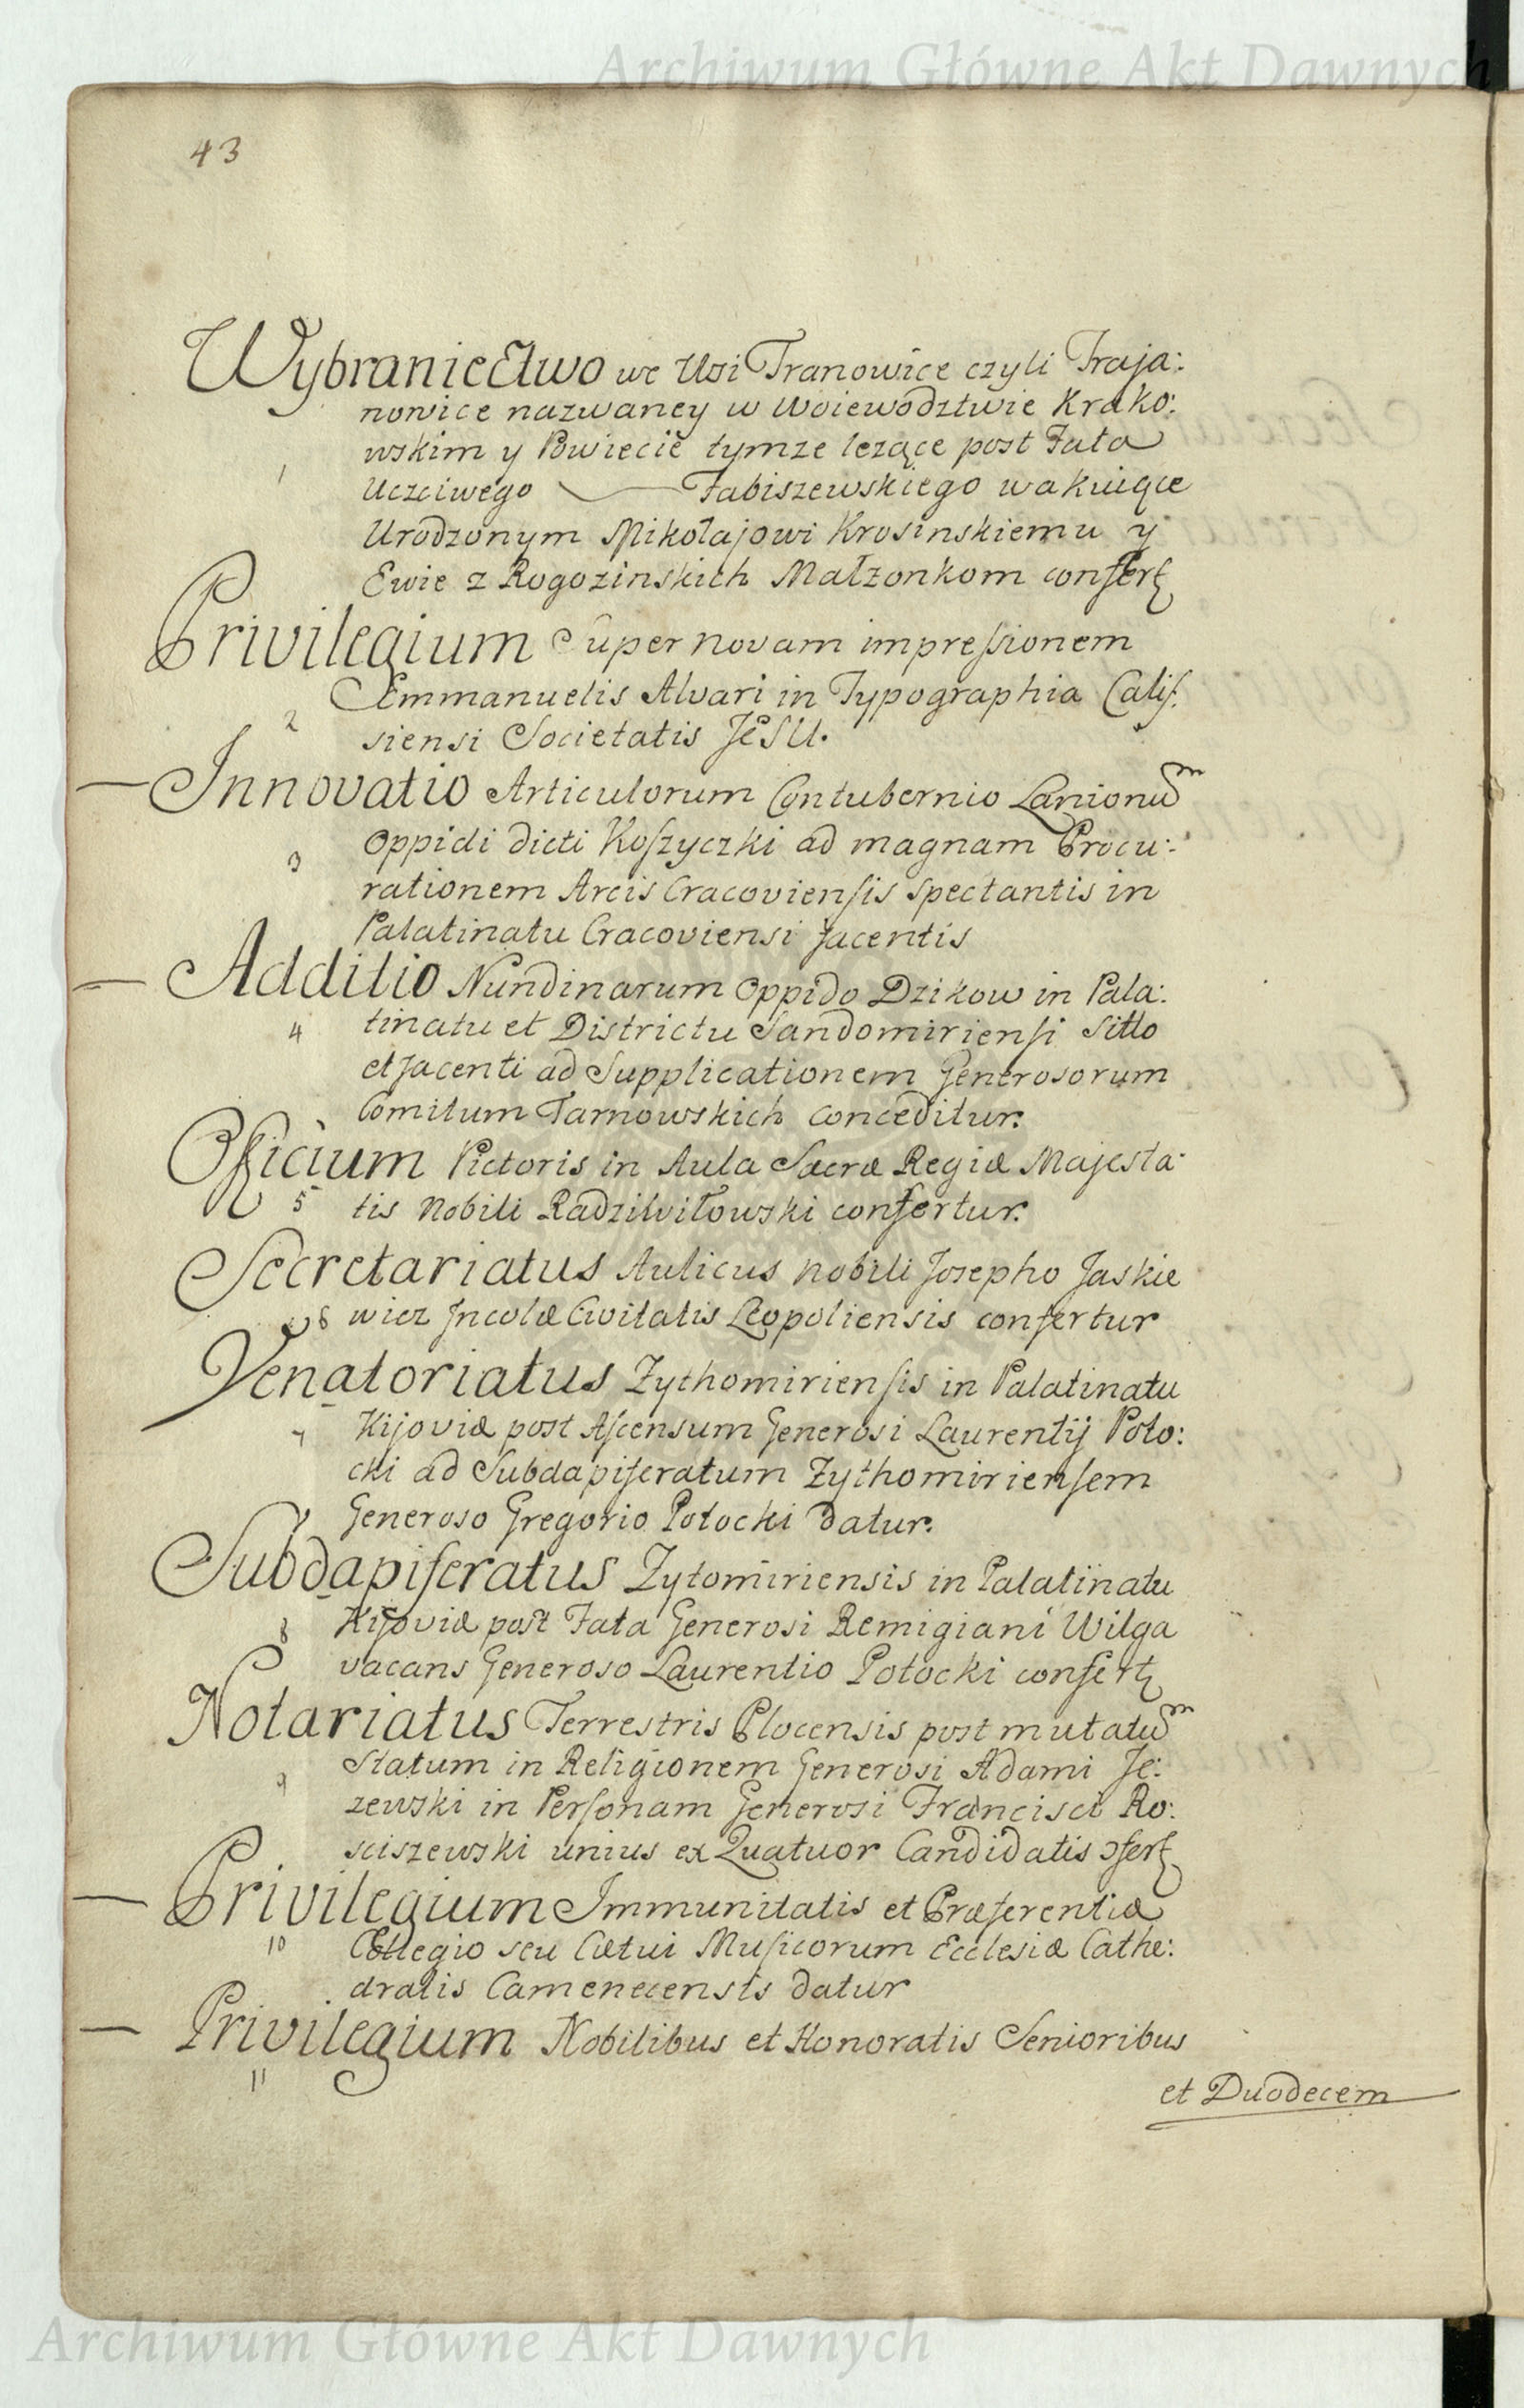 Archiwum Główne Akt Dawnych
43
Wybraniectwo we Wsi Tranowice czyli Traja:
nowice nazwaney w Woiewodztwie Krako:
wskim y Pwiecie tymze lezące post Fata
1
Uczciwego Fabiszewskiego wakuiące
Urodzonym Mikołajowi Krosinskiemu y
Ewie z Rogozinskich Małzonkom confert
Privilegium Super novam impreſsionem
Emmanuelis Alvari in Typographia Caliſ:
2 siensi Societatis JeSU.
Innovatio Articulorum Contubernio Lanionum
Oppidi dicti Koſzyczki ad magnam Procu:
3
rationem Arcis Cracovienſis spectantis in
Palatinatu Cracoviensi jacentis
Additio Nundinarum Oppido Dzikow in Pala:
4 tinatu et Districtu Sandomirienſi Sitto
et jacenti ad Supplicationem Generosorum
Comitum Tarnowskich conceditur.
Officium Pictoris in Aula Sacræ Regiæ Majesta:
5 tis Nobili Radziwiłowski confertur.
Secretariatus Aulicus Nobili Josepho Jaskie
6 wicz Incolæ Civitatis Leopoliensis confertur
Venatoriatus Zythomirienſis in Palatinatu
7 Kijoviæ post Aſcensum Generosi Laurentij Poto:
cki ad Subdapiferatum Zythomirienſem
Generoso Gregorio Potocki datur.
Subdapiferatus Zytomiriensis in Palatinatu
8 Kijoviæ post Fata Generosi Remigiani Wilga
vacans Generoso Laurentio Potocki confert
Notariatus Terrestris Plocensis post mutatum
Statum in Religionem Generosi Adami Je:
9
zewski in Perſonam Generosi Francisci Ro:
sciszewski unius ex Quatuor Candidatis ɔfert
Privilegium Immunitatis et Præferentiæ
10 Collegio seu Cætui Muſicorum Ecclesiæ Cathe:
dralis Camenecensis datur
Privilegium Nobilibus et Honoratis Senioribus
11
et Duodecem
Archiwum Główne Akt Dawnych